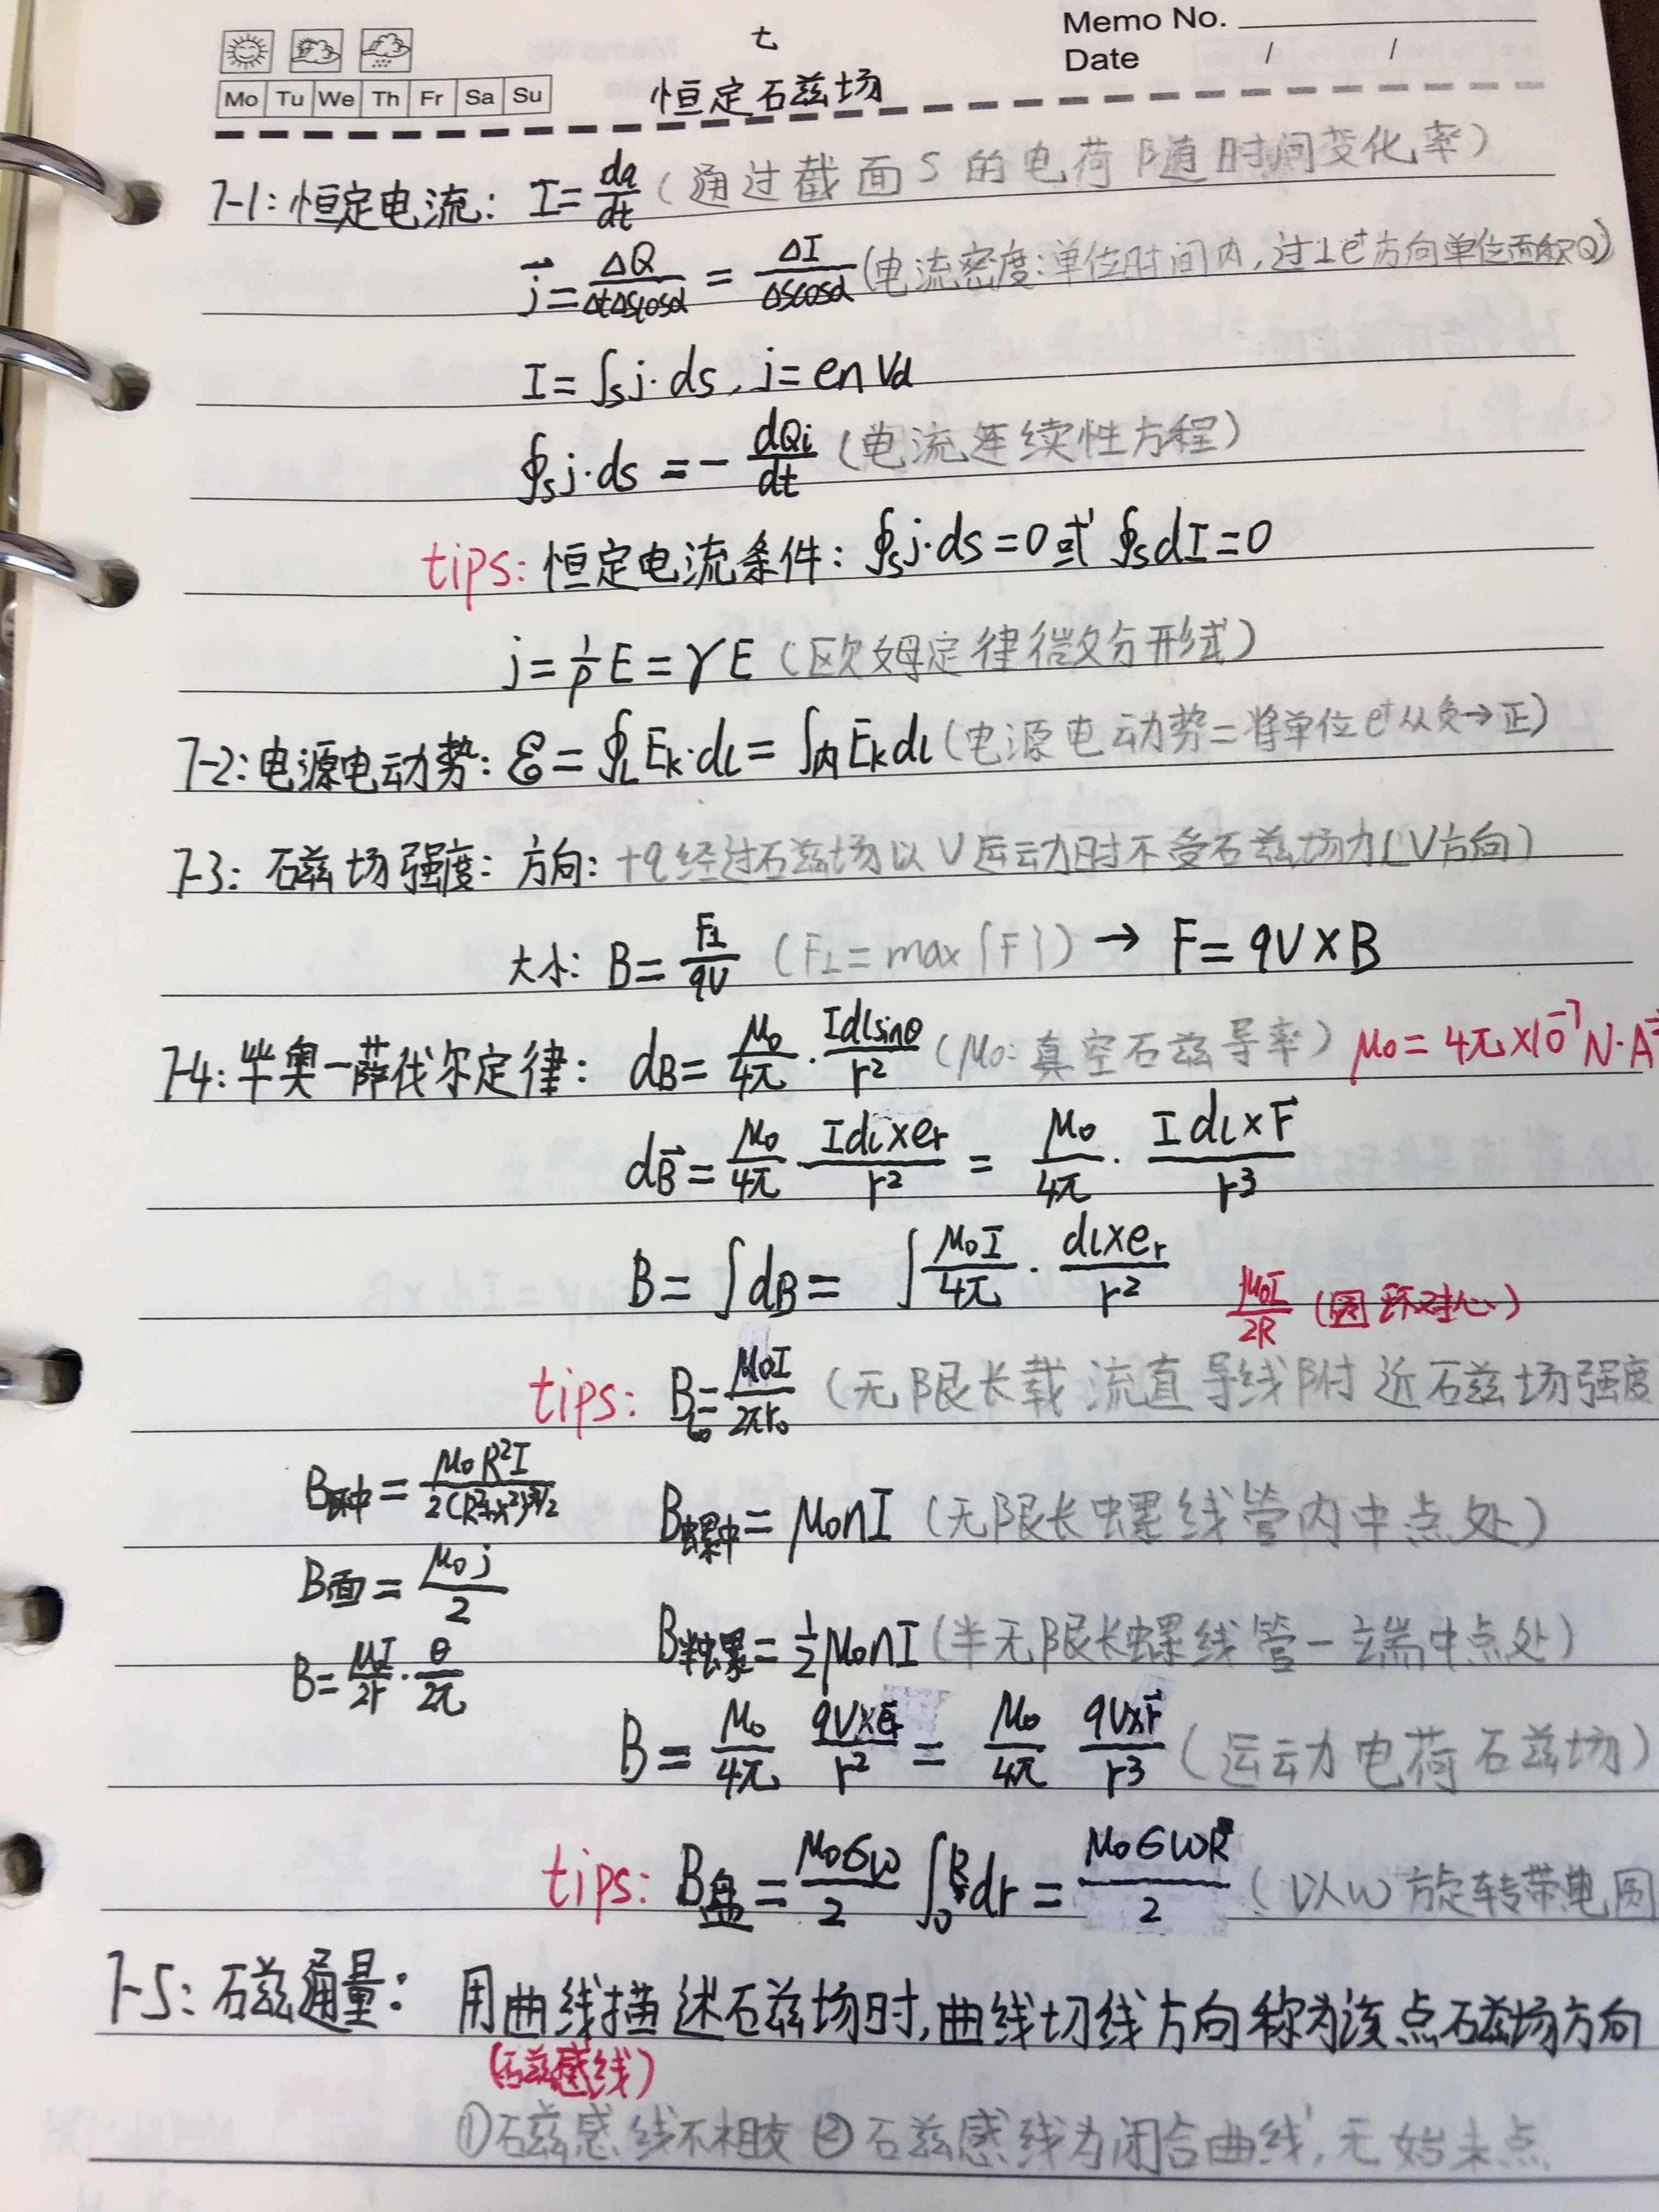 Memo No.
Date / /
Mo Tu We Th Fr Sa Su
七
恒定磁场
7-1: 恒定电流: I = dq/dt (通过截面S的电荷随时间变化率)
j⃗ = ΔQ/ΔtΔScosα = ΔI/ΔScosα (电流密度:单位时间内,过⊥e⁺方向单位面积Q)
I = ∫s j·ds, j = en Vd
∮s j·ds = - dQi/dt (电流连续性方程)
tips: 恒定电流条件: ∮s j·ds = 0 或 ∮s dI = 0
j = 1/ρ E = γE (欧姆定律微分形式)
7-2: 电源电动势: ℰ = ∮L Ek·dl = ∫内 Ek dl (电源电动势=将单位e⁺从负→正)
7-3: 磁场强度: 方向: +q经过磁场以V运动时不受磁场力(V方向)
大小: B = F⊥/qv (F⊥ = max{F}) → F = qV×B
7-4: 毕奥-萨伐尔定律: dB = μ0/4π · Idlsinθ/r² (μ0: 真空磁导率) μ0 = 4π×10⁻⁷ N·A⁻²
dB⃗ = μ0/4π · Idl×er/r² = μ0/4π · Idl×r⃗/r³
B = ∫dB = ∫ μ0I/4π · dl×er/r²
μ0I/2R (圆环对心)
tips: B = μ0I/2πr0 (无限长载流直导线附近磁场强度
B环中 = μ0R²I/2(R²+x²)^3/2
B螺中 = μ0nI (无限长螺线管内中点处)
B面 = μ0j/2
B半螺 = 1/2 μ0nI (半无限长螺线管一端中点处)
B = μ0I/2r · θ/2π
B = μ0/4π qV×er/r² = μ0/4π qV×r⃗/r³ (运动电荷磁场)
tips: B盘 = μ0σω/2 ∫0^R dr = μ0σωR/2 (以ω旋转带电圆
7-5: 磁通量: 用曲线描述磁场时,曲线切线方向称为该点磁场方向
(磁感线)
①磁感线不相交 ②磁感线为闭合曲线,无始末点